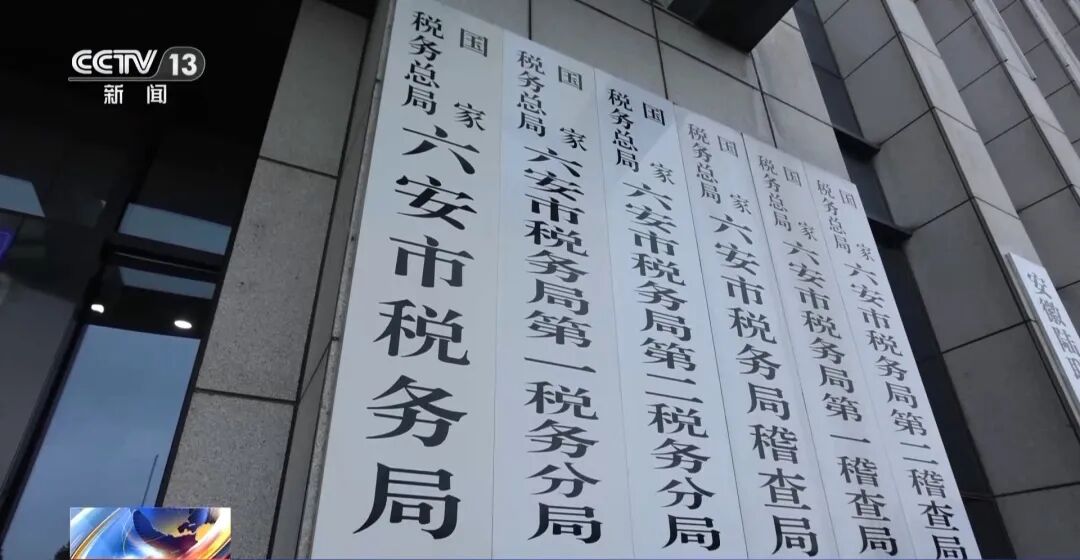 CCTV 13
新闻
国家税务总局六安市税务局
国家税务总局六安市税务局第一税务分局
国家税务总局六安市税务局第二税务分局
国家税务总局六安市税务局稽查局
国家税务总局六安市税务局第一稽查局
国家税务总局六安市税务局第二稽查局
安徽陆